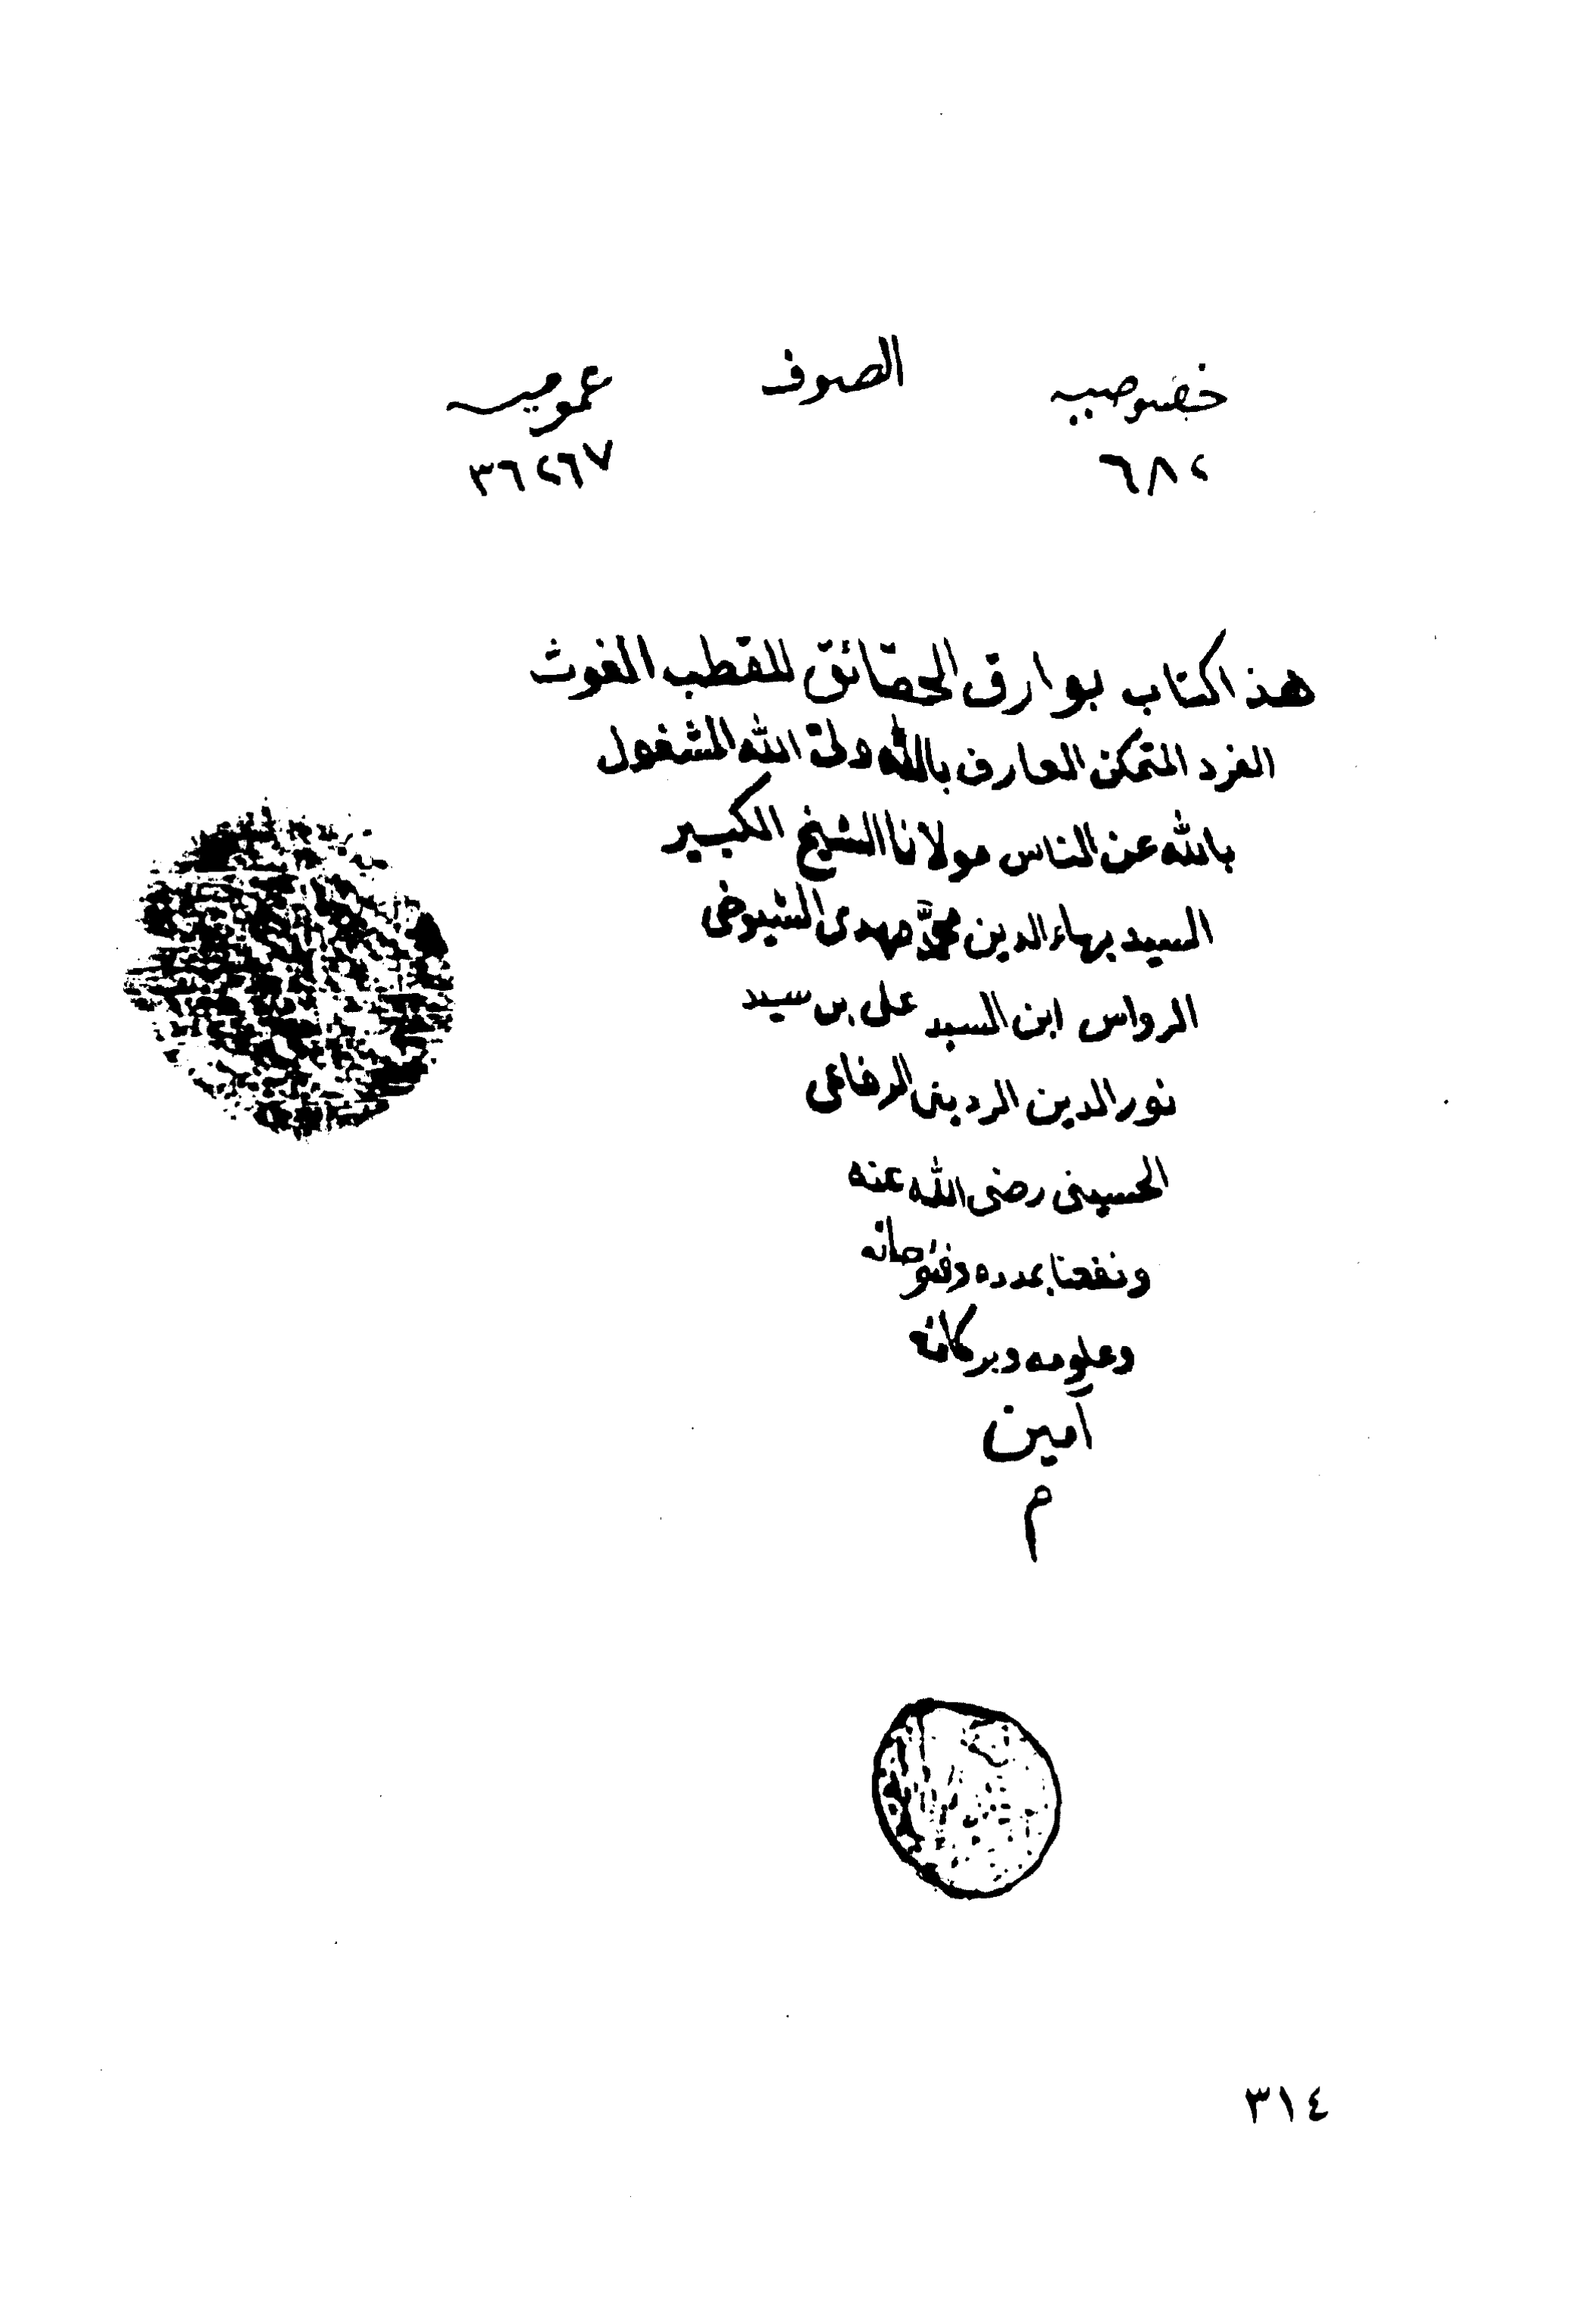 خصوصيه الصوف عموميه
٦٨٢ ٣٦٢٦٧
هذا كتاب بوارق الحقائق للقطب الغوث
الفرد المتمكن العارف بالله ولى الله المشغول
بالله عن الناس مولانا الشيخ الكبير
السيد بهاء الدين محمد مهدى الشيوخى
الرواس ابن السيد على بن سيد
نور الدين الردينى الرفاعى
الحسينى رضى الله عنه
ونفعنا بمدده وفتوحاته
وعلومه وبركاته
آمين
م
٣١٤